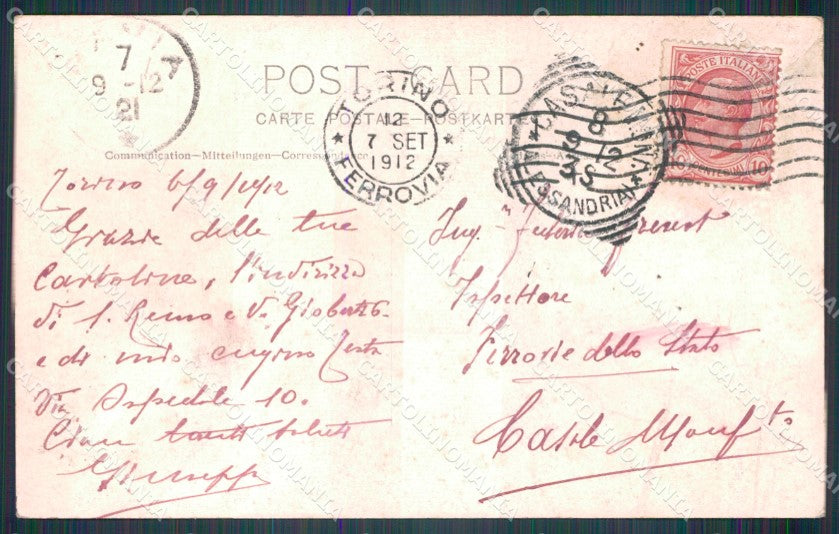 POST CARD
CARTE POSTALE—POSTKARTE
Communication—Mitteilungen—Correspon
7
9-12
21
TORINO
12
7 SET
1912
FERROVIA
8
9-12
3S
ALESSANDRIA
POSTE ITALIANE
10 CENTESIMI 10
Torino 6/9/1912
Grazie delle tue
Cartoline, l'indirizzo
di S. Remo e Va Gioberti 6.
e di mio cugino Testa
Via Ospedale 10.
Ciau tanti saluti
Giuseppe
Ing.
Ispettore
Ferrovie dello Stato
Casale Monf.to
CARTOLINOMANIA